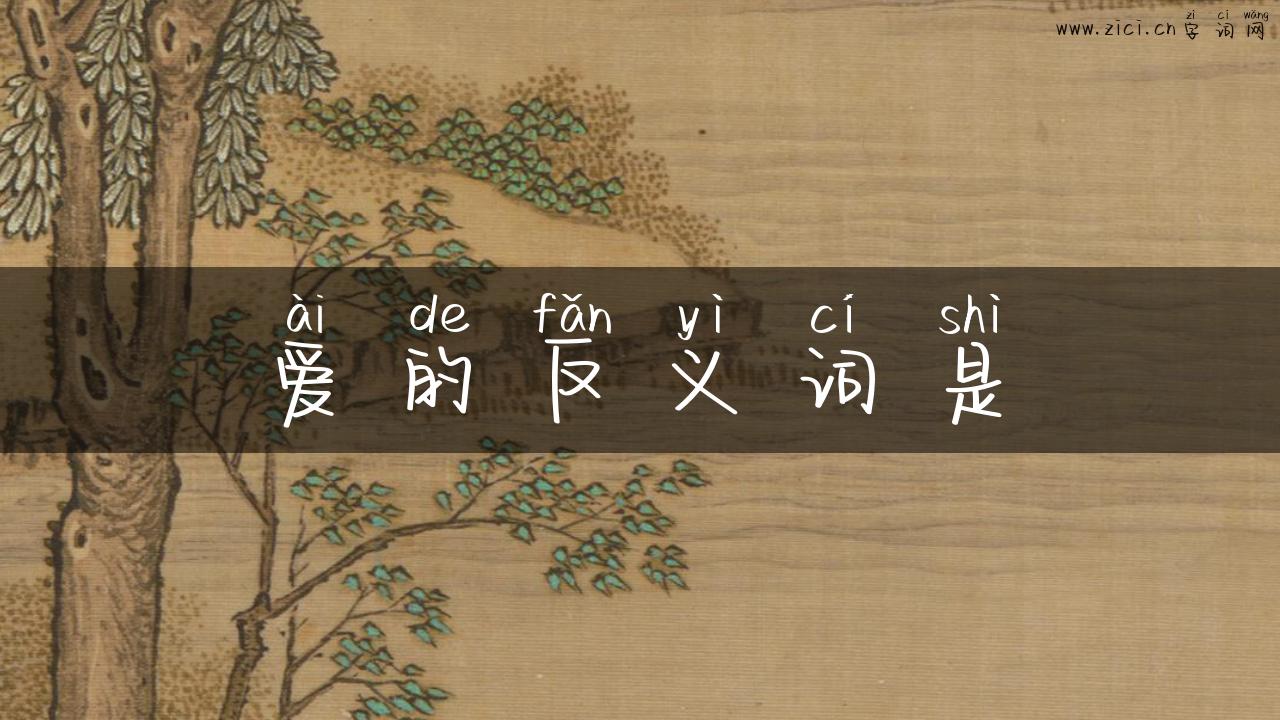 zì cí wǎng
www.zici.cn 字词网
ài de fǎn yì cí shì
爱的反义词是